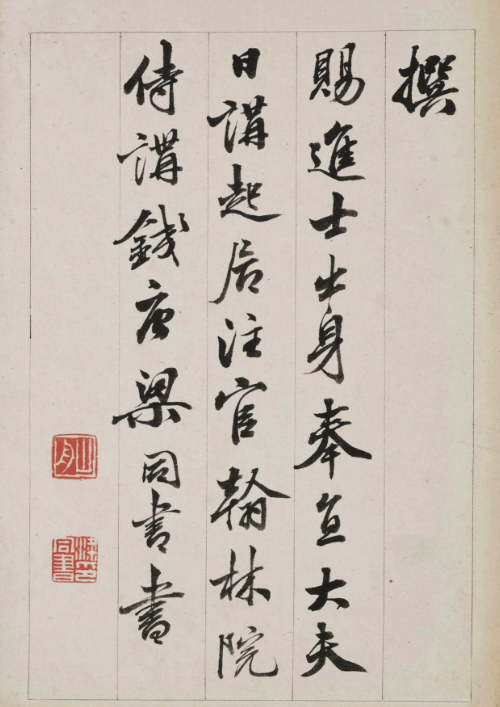 撰
賜進士出身奉直大夫
日講起居注官翰林院
侍講錢唐梁同書書
山舟
梁同書印